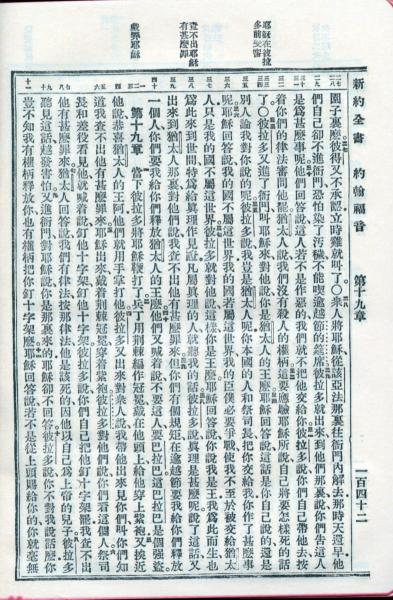 新約全書 約翰福音 第十九章 一百四十二
耶穌在彼拉
多前受審
查不出耶穌
有甚麼罪
耶穌
園子裏麼彼得又不承認立時雞就叫了〇衆人將耶穌從該亞法那裏往衙門內解去那時天還早他
們自己卻不進衙門恐怕染了污穢不能喫逾越節的筵席彼拉多就出來到他們那裏說你們告這人
是爲甚麼事呢他們回答說這人若不是作惡的我們就不把他交給你彼拉多說你們自己帶他去按
着你們的律法審問他罷猶太人說我們沒有殺人的權柄這要應驗耶穌所說自己將要怎樣死的話
了〇彼拉多又進了衙門叫耶穌來對他說你是猶太人的王麼耶穌回答說這話是你自己說的還是
別人論我對你說的呢彼拉多說我豈是猶太人呢你本國的人和祭司長把你交給我你作了甚麼事
呢耶穌回答說我的國不屬這世界我的國若屬這世界我的臣僕必要爭戰使我不至於被交給猶太
人只是我的國不屬這世界彼拉多就對他說這樣你是王麼耶穌回答說你說我是王我爲此而生也
爲此來到世間特爲給眞理作見證凡屬眞理的人就聽我的話彼拉多說眞理是甚麼呢說了這話又
出來到猶太人那裏對他們說我查不出他有甚麼罪來但你們有個規矩在逾越節要我給你們釋放
一個人你們要我給你們釋放猶太人的王麼他們又喊着說不要這人要巴拉巴這巴拉巴是個強盜
第十九章 當下彼拉多將耶穌鞭打了兵丁用荆棘編作冠冕戴在他頭上給他穿上紫袍又挨近
他說恭喜猶太人的王阿他們就用手掌打他彼拉多又出來對衆人說我帶他出來見你們叫你們知
道我查不出他有甚麼罪來耶穌出來戴着荆棘冠冕穿着紫袍彼拉多對他們說你們看這個人祭司
長和差役看見他就喊着說釘他十字架釘他十字架彼拉多說你們自己把他釘十字架罷我查不出
他有甚麼罪來猶太人回答說我們有律法按那律法他是該死的因他以自己爲上帝的兒子彼拉多
聽見這話越發害怕又進衙門對耶穌說你是那裏來的耶穌卻不回答彼拉多說你不對我說話麼你
豈不知我有權柄釋放你也有權柄把你釘十字架麼耶穌回答說若不是從上頭賜給你的你就毫無